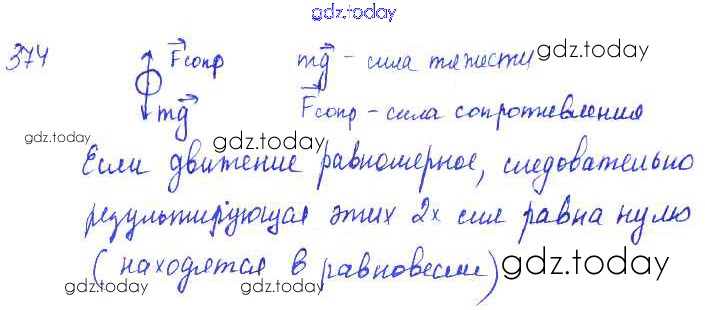 gdz.today
374 F⃗сопр mg⃗ - сила тяжести gdz.today
mg⃗ F⃗сопр - сила сопротивления
gdz.today gdz.today gdz.today
Если движение равномерное, следовательно
результирующая этих 2х сил равна нулю
(находятся в равновесии) gdz.today
gdz.today gdz.today